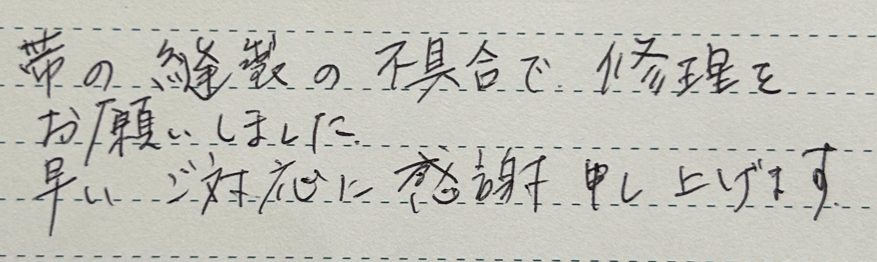 帯の縫製の不具合で、修理を
お願いしました。
早いご対応に感謝申し上げます。